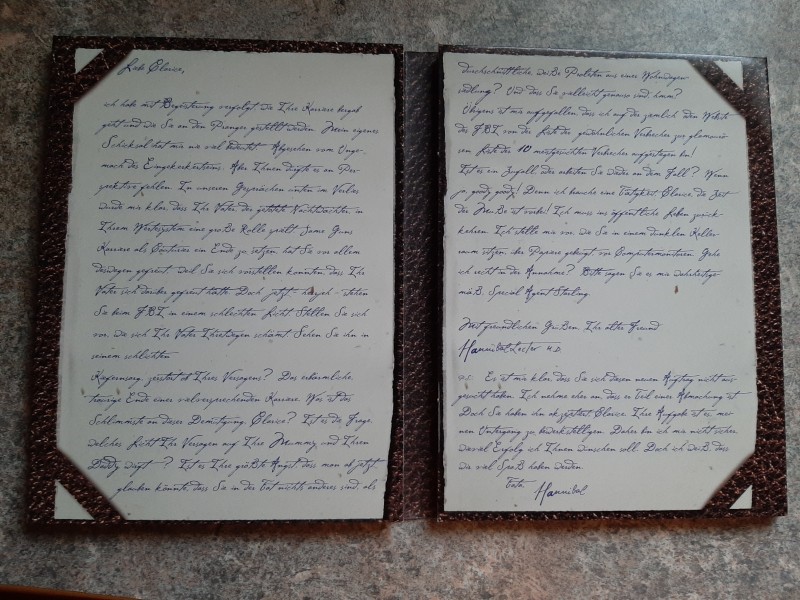 Liebe Clarice,
ich habe mit Begeisterung verfolgt, wie Ihre Karriere bergab
geht und wie Sie an den Pranger gestellt werden. Mein eigenes
Schicksal hat mir nie viel bedeutet. Abgesehen vom Unge-
mach des Eingekerkertseins. Aber Ihnen dürfte es an Per-
spektive fehlen. In unseren Gesprächen unten im Verlies
wurde mir klar, dass Ihr Vater, der getötete Nachtwächter, in
Ihrem Wertesystem eine große Rolle spielt. Jame Gumbs
Karriere als Couturier ein Ende zu setzen, hat Sie vor allem
deswegen gefreut, weil Sie sich vorstellen konnten, dass Ihr
Vater sich darüber gefreut hätte. Doch jetzt - stehen
Sie beim FBI in einem schlechten Licht. Stellen Sie sich
vor, wie sich Ihr Vater Ihretwegen schämt. Sehen Sie ihn in
seinem schlichten
Kiefernsarg, zerstört ob Ihres Versagens? Das erbärmliche,
traurige Ende einer vielversprechenden Karriere. Was ist das
Schlimmste an dieser Demütigung, Clarice? Ist es die Frage,
welches Licht Ihr Versagen auf Ihre Mummy und Ihren
Daddy wirft? Ist es Ihre größte Angst, dass man ab jetzt
glauben könnte, dass Sie in der Tat nichts anderes sind, als
durchschnittliche, weiße Proleten aus einer Wohnwagen-
siedlung? Und dass Sie vielleicht genauso sind, hmm?
Übrigens ist mir aufgefallen, dass ich auf der ziemlich öden Website
des FBI von der Liste der gewöhnlichen Verbrecher zur glamourö-
seren Liste der 10 meistgesuchten Verbrecher aufgestiegen bin!
Ist es ein Zufall, oder arbeiten Sie wieder an dem Fall? Wenn
ja, goody, goody! Denn ich brauche eine Tätigkeit Clarice, die Zeit
der Muße ist vorbei! Ich muss ins öffentliche Leben zurück-
kehren. Ich stelle mir vor, wie Sie in einem dunklen Keller-
raum sitzen, über Papiere gebeugt, vor Computermonitoren. Gehe
ich recht in der Annahme? Bitte sagen Sie es mir wahrheitsge-
mäß, Special Agent Starling.
Mit freundlichen Grüßen, Ihr alter Freund
Hannibal Lecter M.D.
P.S. Es ist mir klar, dass Sie sich diesen neuen Auftrag nicht aus-
gesucht haben. Ich nehme eher an, dass er Teil einer Abmachung ist.
Doch Sie haben ihn akzeptiert Clarice. Ihre Aufgabe ist es, mei-
nen Untergang zu bewerkstelligen. Daher bin ich mir nicht sicher,
wieviel Erfolg ich Ihnen wünschen soll. Doch ich weiß, dass
wir viel Spaß haben werden.
Tata, Hannibal